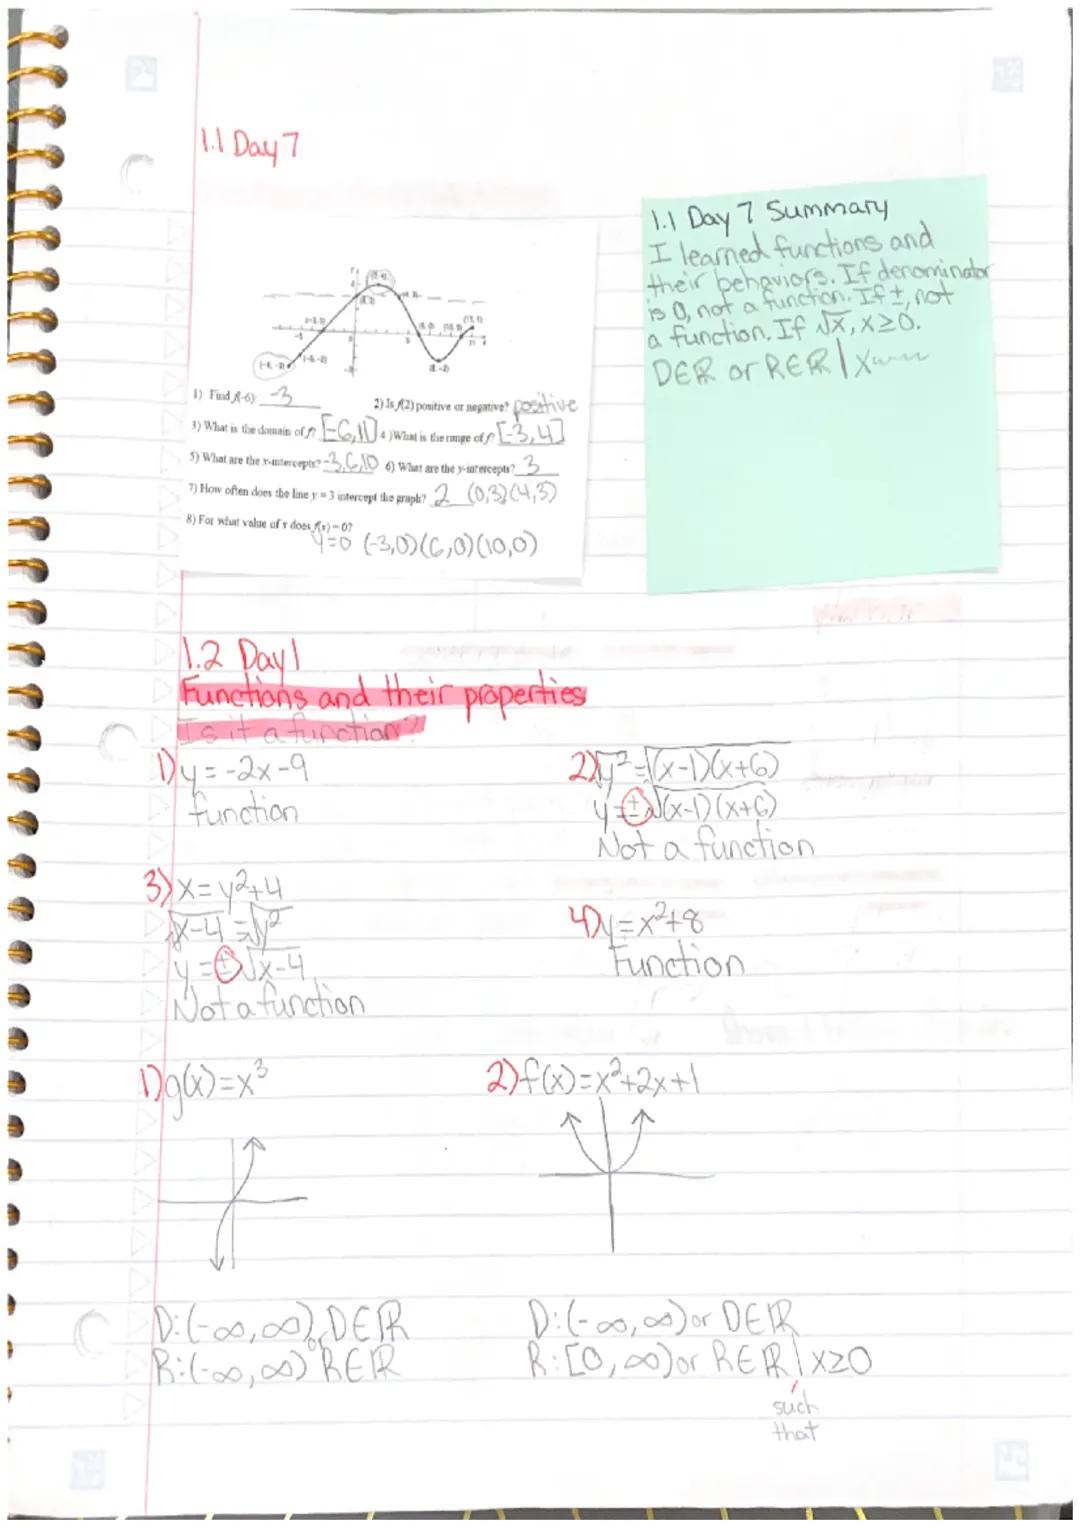 1.1 Day 7
1.1 Day 7 Summary
I learned functions and
their behaviors. If denominator
is 0, not a function. If ±, not
a function. If √x, x≥0.
DEℝ or REℝ | x
(0, 3)
(-3, 0)
(-5, -2)
(8, -2)
1) Find f(-6) -3
2) Is f(2) positive or negative? positive
3) What is the domain of f? [-6,11] 4.) What is the range of f? [-3,4]
5) What are the x-intercepts? -3,6,10 6) What are the y-intercepts? 3
7) How often does the line y = 3 intercept the graph? 2 (0,3)(4,3)
8) For what value of x does f(x) = 0?
y=0 (-3,0)(6,0)(10,0)
1.2 Day 1
Functions and their properties
Is it a function?
1) y = -2x-9
function
2) √y² = √(x-1)(x+6)
y = ±√(x-1)(x+6)
Not a function
3) x = y²+4
√x-4 = √y²
y = ±√x-4
Not a function
4) y = x²+8
Function
1) g(x) = x³
2) f(x) = x²+2x+1
D: (-∞, ∞) or DEℝ
R: (-∞, ∞) REℝ
D: (-∞, ∞) or DEℝ
R: [0, ∞) or REℝ | x≥0
such
that